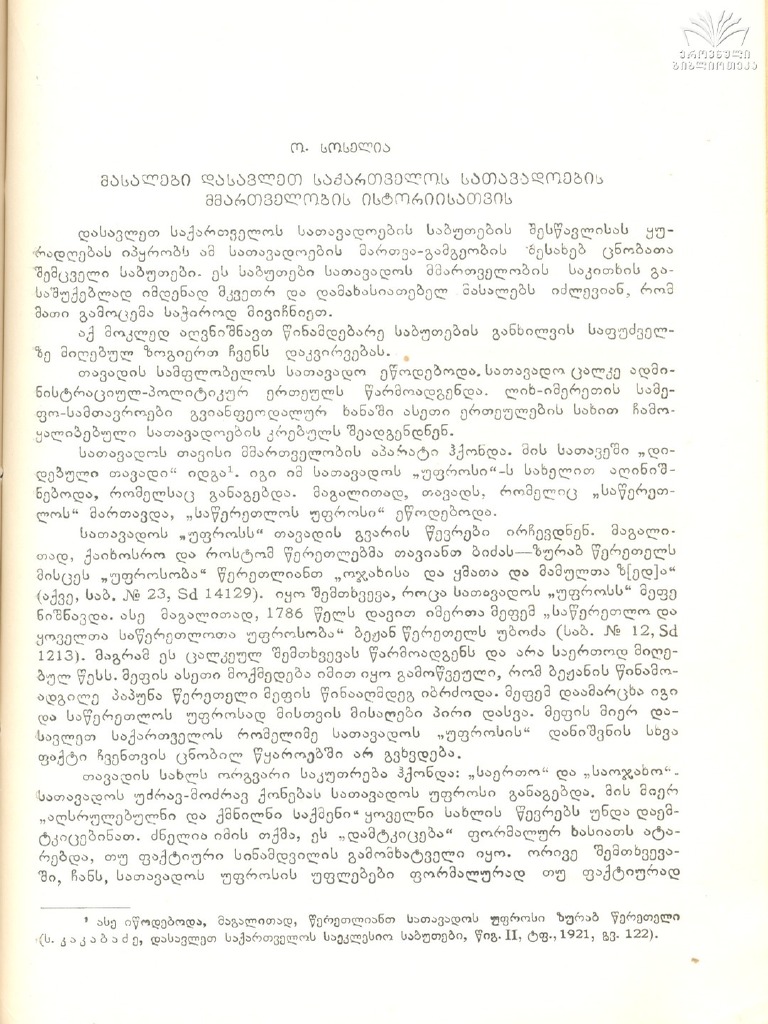 ეროვნული
ბიბლიოთეკა
ო. სოსელია
მასალები დასავლეთ საქართველოს სათავადოების
მმართველობის ისტორიისათვის
დასავლეთ საქართველოს სათავადოების საბუთების შესწავლისას ყუ-
რადღებას იპყრობს ამ სათავადოების მართვა-გამგეობის შესახებ ცნობათა
შემცველი საბუთები. ეს საბუთები სათავადოს მმართველობის საკითხის გა-
საშუქებლად იმდენად მკვეთრ და დამახასიათებელ მასალებს იძლევიან, რომ
მათი გამოცემა საჭიროდ მივიჩნიეთ.
აქ მოკლედ აღვნიშნავთ წინამდებარე საბუთების განხილვის საფუძველ-
ზე მიღებულ ზოგიერთ ჩვენს დაკვირვებას.
თავადის სამფლობელოს სათავადო ეწოდებოდა. სათავადო ცალკე ადმი-
ნისტრაციულ-პოლიტიკურ ერთეულს წარმოადგენდა. ლიხ-იმერეთის სამე-
ფო-სამთავროები გვიანფეოდალურ ხანაში ასეთი ერთეულების სახით ჩამო-
ყალიბებული სათავადოების კრებულს შეადგენდნენ.
სათავადოს თავისი მმართველობის აპარატი ჰქონდა. მის სათავეში „დი-
დებული თავადი“ იდგა¹. იგი იმ სათავადოს „უფროსი“-ს სახელით აღინიშ-
ნებოდა, რომელსაც განაგებდა. მაგალითად, თავადს, რომელიც „საწერეთ-
ლოს“ მართავდა, „საწერეთლოს უფროსი“ ეწოდებოდა.
სათავადოს „უფროსს“ თავადის გვარის წევრები ირჩევდნენ. მაგალი-
თად, ქაიხოსრო და როსტომ წერეთლებმა თავიანთ ბიძას—ზურაბ წერეთელს
მისცეს „უფროსობა“ წერეთლიანთ „ოჯახისა და ყმათა და მამულთა ზ[ედ]ა“
(აქვე, საბ. № 23, Sd 14129). იყო შემთხვევა, როცა სათავადოს „უფროსს“ მეფე
ნიშნავდა. ასე მაგალითად, 1786 წელს დავით იმერთა მეფემ „საწერეთლო და
ყოველთა საწერეთლოთა უფროსობა“ ბეჟან წერეთელს უბოძა (საბ. № 12, Sd
1213). მაგრამ ეს ცალკეულ შემთხვევას წარმოადგენს და არა საერთოდ მიღე-
ბულ წესს. მეფის ასეთი მოქმედება იმით იყო გამოწვეული, რომ ბეჟანის წინამო-
ადგილე პაპუნა წერეთელი მეფის წინააღმდეგ იბრძოდა. მეფემ დაამარცხა იგი
და საწერეთლოს უფროსად მისთვის მისაღები პირი დასვა. მეფის მიერ და-
სავლეთ საქართველოს რომელიმე სათავადოს „უფროსის“ დანიშვნის სხვა
ფაქტი ჩვენთვის ცნობილ წყაროებში არ გვხვდება.
თავადის სახლს ორგვარი საკუთრება ჰქონდა: „საერთო“ და „საოჯახო“.
სათავადოს უძრავ-მოძრავ ქონებას სათავადოს უფროსი განაგებდა. მის მიერ
„აღსრულებულნი და ქმნილნი საქმენი“ ყოველნი სახლის წევრებს უნდა დაემ-
ტკიცებინათ. ძნელია იმის თქმა, ეს „დამტკიცება“ ფორმალურ ხასიათს ატა-
რებდა, თუ ფაქტიური სინამდვილის გამომხატველი იყო. ორივე შემთხვევა-
ში, ჩანს, სათავადოს უფროსის უფლებები ფორმალურად თუ ფაქტიურად
¹ ასე იწოდებოდა, მაგალითად, წერეთლიანთ სათავადოს უფროსი ზურაბ წერეთელი
(ს. კაკაბაძე, დასავლეთ საქართველოს საეკლესიო საბუთები, წიგ. II, ტფ., 1921, გვ. 122).